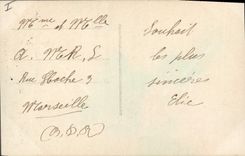 I
Mme et Mlle
A. M. R. L
Rue Hoche 3
Marseille
(B.D.R)
Souhait
les plus
sincères
Elie